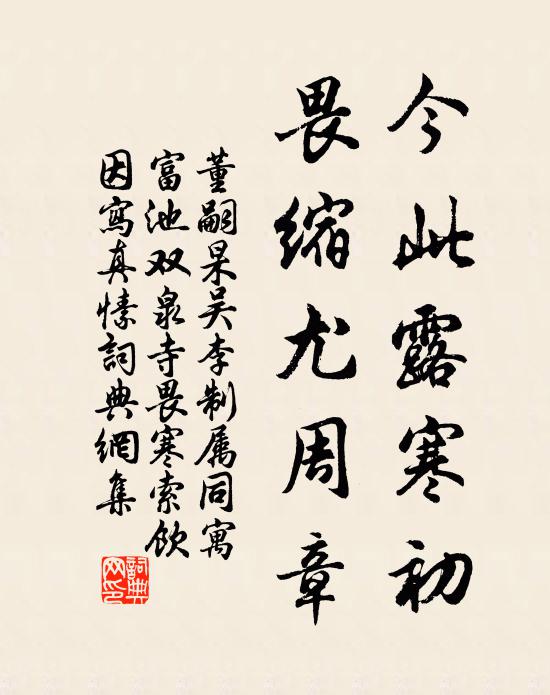 今此露寒初
畏缩尤周章
董嗣杲吴李制属同寓
富池双泉寺畏寒索饮
因寫真愫詞典網集
詞典
网印